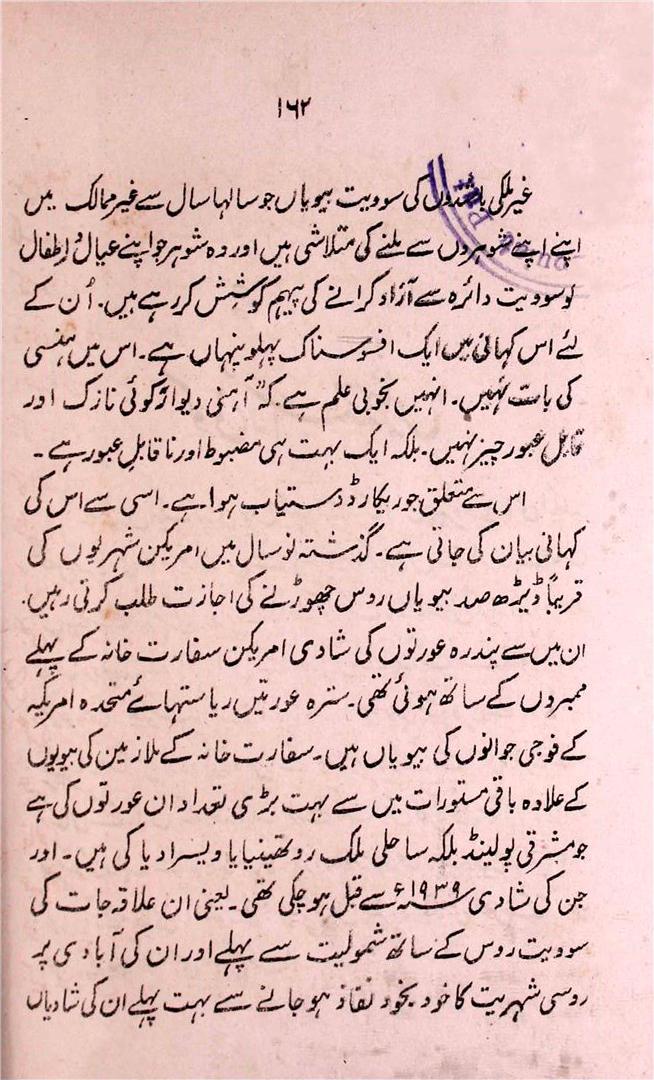 ۱۶۲
غیر ملکی باشندوں کی سوویت بیویاں جو سالہا سال سے غیر ممالک میں
اپنے اپنے شوہروں سے ملنے کی متلاشی ہیں اور وہ شوہر جو اپنے عیال و اطفال
کو سوویت دائرہ سے آزاد کرانے کی پیہم کوشش کر رہے ہیں۔ اُن کے
لئے اس کہانی میں ایک افسوسناک پہلو پنہاں ہے۔ اس میں ہنسی
کی بات نہیں۔ انہیں بخوبی علم ہے کہ "آہنی دیوار" کوئی نازک اور
قابل عبور چیز نہیں۔ بلکہ ایک بہت ہی مضبوط اور ناقابل عبور ہے۔
اس سے متعلق جو ریکارڈ دستیاب ہوا ہے۔ اسی سے اس کی
کہانی بیان کی جاتی ہے۔ گذشتہ نو سال میں امریکن شہریوں کی
قریباً ڈیڑھ صد بیویاں روس چھوڑنے کی اجازت طلب کرتی رہیں۔
ان میں سے پندرہ عورتوں کی شادی امریکن سفارت خانہ کے پہلے
ممبروں کے ساتھ ہوئی تھی۔ سترہ عورتیں ریاستہائے متحدہ امریکہ
کے فوجی جوانوں کی بیویاں ہیں۔ سفارت خانہ کے ملازمین کی بیویوں
کے علاوہ باقی مستورات میں سے بہت بڑی تعداد ان عورتوں کی ہے
جو مشرقی پولینڈ بلکہ ساحلی ملک روتھینیا یا ویسرادیا کی ہیں۔ اور
جن کی شادی ۱۹۳۹ء سے قبل ہو چکی تھی۔ یعنی ان علاقہ جات کی
سوویت روس کے ساتھ شمولیت سے پہلے اور ان کی آبادی پر
روسی شہریت کا خود بخود نفاذ ہو جانے سے بہت پہلے ان کی شادیاں